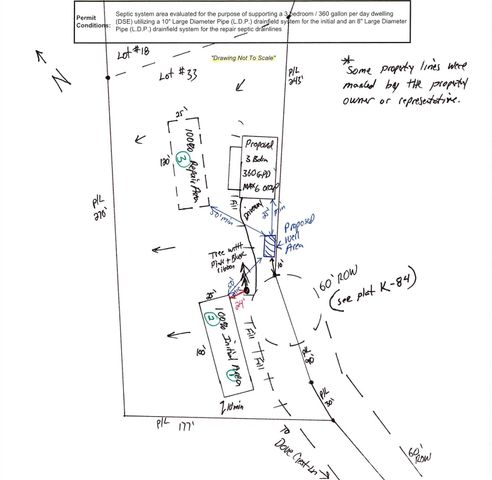 Permit Conditions:
Septic system area evaluated for the purpose of supporting a 3 bedroom / 360 gallon per day dwelling
(DSE) utilizing a 10" Large Diameter Pipe (L.D.P.) drainfield system for the initial and an 8" Large Diameter
Pipe (L.D.P.) drainfield system for the repair septic drainlines
"Drawing Not To Scale"
Lot #18
Lot #33
N
P/L
243'
* Some property lines were
marked by the property
owner or representative.
25'
130'
100% Repair Area
3
Proposed
3 Bdrm
360 GPD
Max 6 occup
Fill
Driveway
50' min
25' min
Proposed
Well
Area
P/L
270'
Tree with
Pink + Black
ribbon
10'
60' ROW
(see plat K-84)
24'
100% Initial Area
2
1
Fill
Fill
10 min
P/L
30'
P/L 177'
To
Dove Crest Ln
60'
ROW